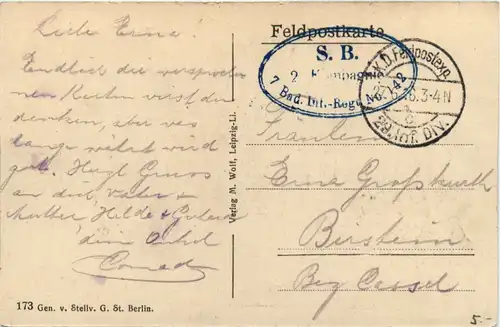 Liebe Erna!
Endlich die versproche
nen Karten wirst du
denken, aber was
lange währt wird
gut. Herzl Gruss
an dich, Vater +
Mutter Hilde +
dein Onkel
Conrad
173 Gen. v. Stellv. G. St. Berlin.
Verlag M. Wolf, Leipzig-Li.
Feldpostkarte
S. B.
2 Kompagnie
7 Bad. Inf.-Regt. No. 142
K.D. Feldpostexp.
3-4N
29. Inf. DIV.
Fräulein
Erna Großkurth
Birstein
Bez Cassel
5.-